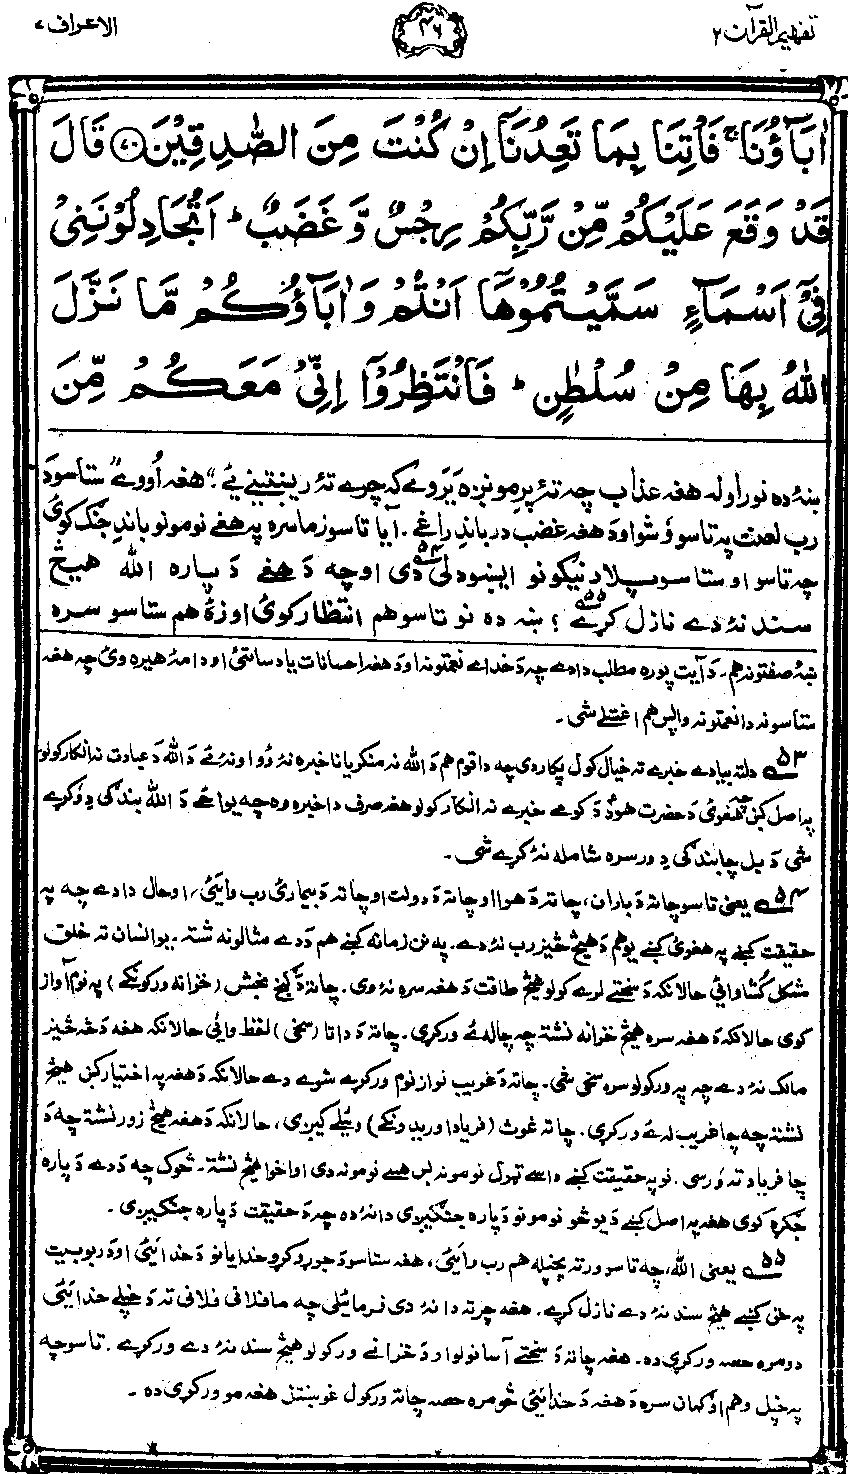 تفهیم القرآن ۲
۴۶
الاعراف ۷
اٰبَآؤُنَا ۚ فَاْتِنَا بِمَا تَعِدُنَآ اِنْ كُنْتَ مِنَ الصّٰدِقِيْنَ ﴿۷۰﴾ قَالَ
قَدْ وَقَعَ عَلَيْكُمْ مِّنْ رَّبِّكُمْ رِجْسٌ وَّ غَضَبٌ ؕ اَتُجَادِلُوْنَنِيْ
فِيْۤ اَسْمَآءٍ سَمَّيْتُمُوْهَاۤ اَنْتُمْ وَ اٰبَآؤُكُمْ مَّا نَزَّلَ
اللّٰهُ بِهَا مِنْ سُلْطٰنٍ ؕ فَانْتَظِرُوْۤا اِنِّيْ مَعَكُمْ مِّنَ
ښهٔ ده نو راوله هغه عذاب چه تهٔ پرِ مونږه یَروے که چرے تهٔ ریښتینے یے." هغهٔ اُووے" ستاسو دَ
رب لعنت په تاسو وَشو او دَ هغه غضب درباندِ راغے. آیا تاسو زما سره په هغے نومونو باندِ جنګ کوئ
چه تاسو او ستاسو پلار نیکونو ایښودلی دی او چه دَ هغے دَ پاره الله هیڅ
سند نهٔ دے نازل کړے ؟ ښه ده نو تاسو هم انتظار کوئ او زهٔ هم ستاسو سره
ښهٔ صفتونه هم. دَ آیت پوره مطلب دا دے چه دَ خدائے نعمتونه او دَ هغه احسانات یاد ساتئ او دا مهٔ هیره وئ چه هغه
ستاسو نه دا نعمتونه واپس هم اغستلے شی.
۵۳ دلته بیا دے خبرے ته خیال کول پکار دی چه دا قوم هم دَ الله نه منکر یا ناخبره نهٔ وُ او نهٔ ئے دَ الله دَ عبادت نه انکار کولو
په اصل کښ چه هغوئ دَ حضرت هودؑ دَ کومے خبرے نه انکار کولو هغه صرف دا خبره وه چه یواځے دَ الله بندګی دِ وُکړے
شی دَ بل چا بندګی دِ ورسره شامله نهٔ کړے شی.
۵۴ یعنی تاسو چاته دَ باران، چاته دَ هوا او چاته دَ دولت او چاته دَ بیمارئ رب وایئ، او حال دا دے چه په
حقیقت کښے په هغوئ کښے یو هم دَ هیڅ څیز رب نهٔ دے. په نن زمانه کښے هم دَ دے مثالونه شته. یو انسان ته خلق
مشکل کُشا وائی حالانکه دَ سختے لرے کولو هیڅ طاقت دَ هغه سره نهٔ وی. چاته دَ ګنج بخش (خزانه ورکونکے) په نوم آواز
کوی حالانکه دَ هغه سره هیڅ خزانه نشته چه چاله ئے ورکړی. چاته دَ داتا (سخی) لفظ وائی حالانکه هغه دَ څه څیز
مالک نهٔ دے چه په ورکولو سره سخی شی. چاته دَ غریب نواز نوم ورکړے شوے دے حالانکه دَ هغه په اختیار کښ هیڅ
نشته چه چا غریب له ئے ورکړی. چاته غوث (فریاد اوریدونکے) وئیلے کیږی، حالانکه دَ هغه هیڅ زور نشته چه دَ
چا فریاد ته وَرسی. نو په حقیقت کښے داسے ټول نومونه بس هسے نومونه دی او اخوا هیڅ نشته. څوک چه دَ دے دَ پاره
جګړه کوی هغه په اصل کښے دَ یو څو نومونو دَ پاره جنګیږی دا نهٔ ده چه دَ حقیقت دَ پاره جنګیږی.
۵۵ یعنی الله، چه تاسو ورته پخپله هم رب وایئ، هغه ستاسو دَ جوړو کړو خدایانو دَ خدائیئ او دَ ربوبیت
په حق کښے هیڅ سند نهٔ دے نازل کړے. هغه چرته دا نهٔ دی فرمائیلی چه ما فلانی فلانی ته دَ خپلے خدائیئ
دومره حصه ورکړی ده. هغه چاته دَ سختے آسانولو او دَ خزانے ورکولو هیڅ سند نهٔ دے ورکړے. تاسو چه
په خپل وهم او ګمان سره دَ هغه دَ خدائیئ څومره حصه چاته ورکول غوښتل هغه مو ورکړی ده.